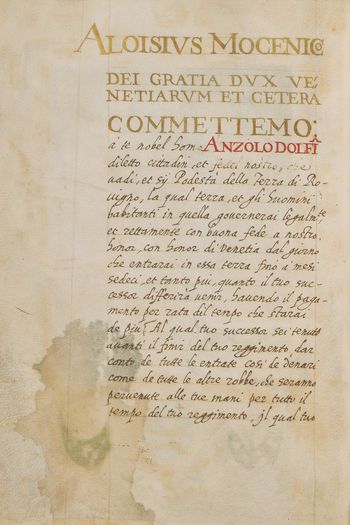 ALOISIVS MOCENICO
DEI GRATIA DVX VE
NETIARVM ET CETERA
COMMETTEMO:
à te nobel homo ANZOLO DOLFI
diletto cittadin, et fedel nostro, che
uadi, et sij Podestà della Terra di Ro-
uigno, la qual terra, et gli huomini
habitanti in quella gouernerai legalmte
et rettamente con buona fede a nostro
honor, con honor di Venetia dal giorno
che entrarai in essa terra fino à mesi
sedeci, et tanto piu, quanto il tuo suc-
cessor differirà uenir, hauendo il paga-
mento per rata del tempo che starai
de piu, Al qual tuo successor sei tenuto
auanti il finir del tuo reggimento dar
conto de tutte le entrate cosi de denari
come de tutte le altre robbe, che seranno
peruenute alle tue mani per tutto il
tempo del tuo reggimento, jl qual tuo